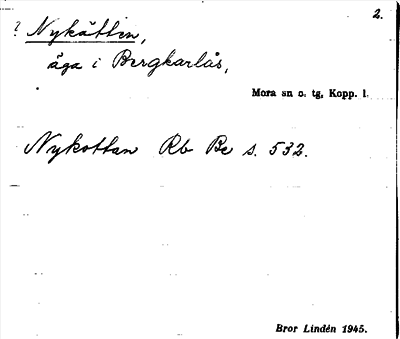 2.
? Nykåttin,
äga i Bergkarlås,
Mora sn o. tg, Kopp. l.
Nykottan Rb Be s. 532.
Bror Lindén 1945.